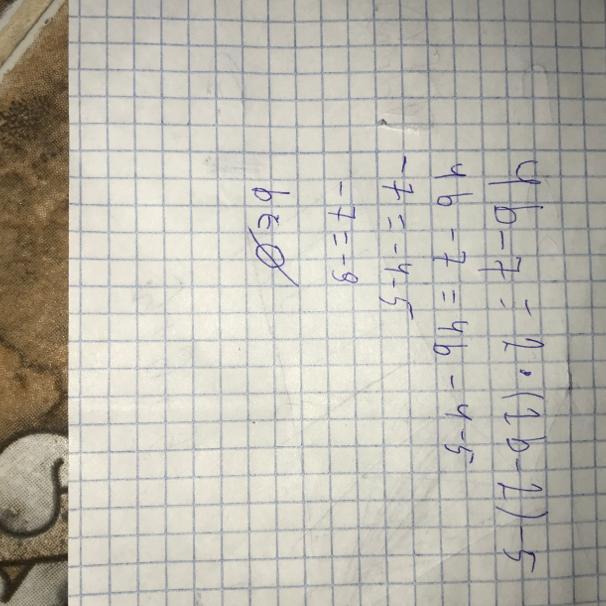 4b-7=2·(2b-2)-5
4b-7=4b-4-5
-7=-4-5
-7=-9
b∈∅